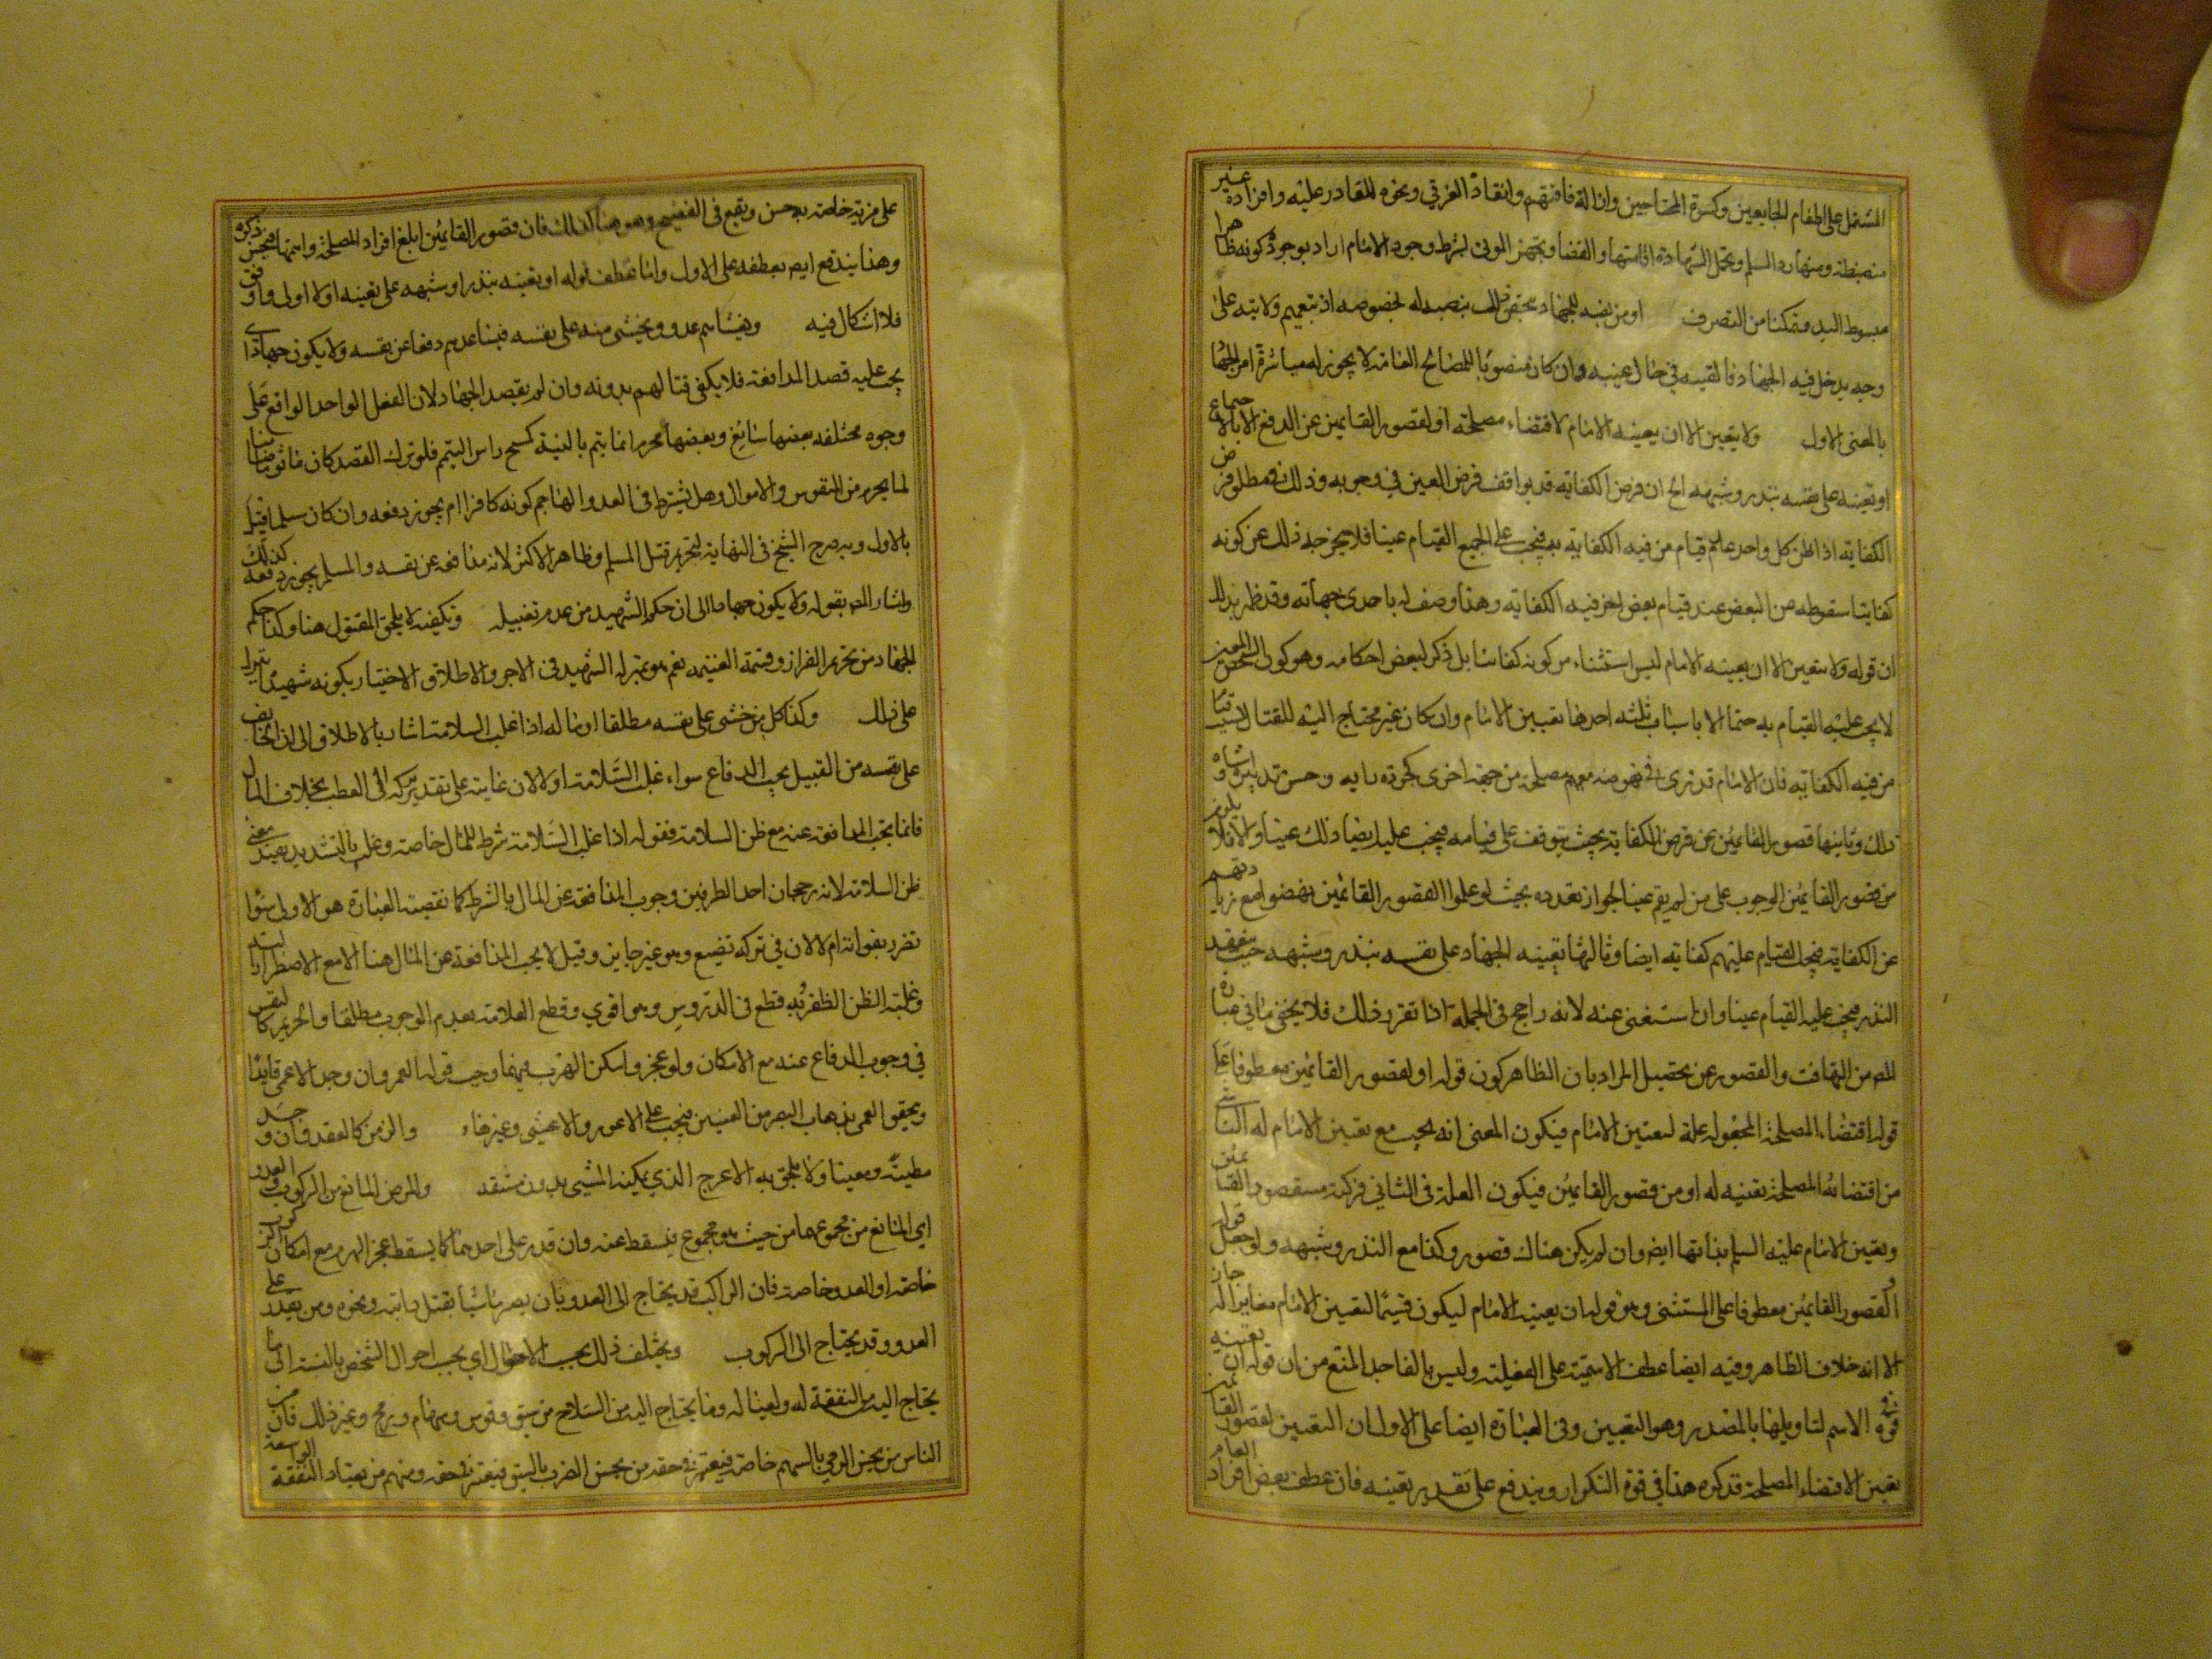 المشتمل على اطعام الجايعين وكسوة المحتاجين وازالة فاقتهم وانقاذ الغرقى ونحوه للقادر عليه وافراده غير
منضبطة ومنها رد السلم وتحمل الشهادة اقامتها والقضا وتجهيز الموتى بشرط وجود الامام اراد بوجوده كونه ظاهرا
مبسوط اليد متمكنا من التصرف او من نصبه للجهاد بخصوصه اذ بتعميم ولايته على
وجه يدخل فيه الجهاد فالفقيه في حال الغيبة وان كان منصوبا للمصالح العامة لا يجوز له مباشرة امر الجهاد
بالمعنى الاول ولا يتعين الا ان يعينه الامام لاقتضاء مصلحة او لقصور القايمين عن الدفع الا بالاجتماع
او تعينه على نفسه بنذر وشبهه الخ ان فرض الكفاية قد يوافق فرض العين في وجوبه وذلك في مطلق فرض
الكفاية اذا ظن كل واحد عدم قيام من فيه الكفاية به فيجب على الجميع القيام عينا فلا يخرجه ذلك عن كونه
كفايتا سقوطه عن البعض عند قيام بعض اخر فيه الكفاية وهذا وصف له باحدى جهاته وقد ظهر بذلك
ان قوله ولا يتعين الا ان يعينه الامام ليس استثناء من كونه كفائيا بل ذكر لبعض احكامه وهو كون الشخص المعين
لا يجب عليه القيام به حتما الا باسباب ثلثه احدها تعيين الامام وان كان غير محتاج اليه للقتال لسبب قيام
من فيه الكفاية فان الامام قد يرى في نهوضه معهم مصلحة من جهة اخرى كجودة رايه وحسن تدبيره واشباه
ذلك وثانيها قصور القائمين عن فرض الكفاية بحيث يتوقف على قيامه فيجب عليه ايضا ذلك عينا والا فلا يلزم
من قصور القائمين الوجوب على من لم يقم عينا لجواز تعدده بحيث لو علموا القصور القائمين نهضوا مع زيادتهم
عن الكفاية فيجب القيام عليهم كفاية ايضا وثالثها تعينه الجهاد على نفسه بنذر وشبهه حيث ينعقد
النذر فيجب عليه القيام عينا وان استغنى عنه لانه راجح في الجملة اذا تقرر ذلك فلا يخفى ما في عبارة
المص من التهافت والقصور عن تحصيل المراد بان الظاهر كون قوله او لقصور القائمين معطوفا على
قوله اقتضاء المصلحة المجعوله علة لتعيين الامام فيكون المعنى انه يجب مع تعيين الامام له الناشي
من اقتضائه المصلحة تعينه له او من قصور القايمين فيكون العلة في الثاني مركبة من قصور القائمين
وتعيين الامام عليه السلم بذاتها ايض وان لم يكن هناك قصور وكذا مع النذر وشبهه ولو جعل قوله
او لقصور القائمين معطوفا على المستثنى وهو قوله ان يعينه الامام ليكون قسيما لتعيين الامام مغايرا له جاز
الا انه خلاف الظاهر وفيه ايضا عطف الاسمية على الفعلية وليس بالفاحد المنع من ان قوله ان يعينه
في قوة الاسم لتاويلها بالمصدر وهو التعيين وفي العبارة ايضا على الاول ان التعيين لقصور القائمين
تعيين الاقتضاء المصلحة قد كره هذا في قوة التكرار ويندفع على تقدير تعينه فان عطف بعض افراد العام
على مزية خاصة يحسن ويقع في الفصيح وهو هنا كذلك فان قصور القائمين ابلغ افراد المصلحة واتمها فيحسن ذكره
وهذا يندفع ايض بعطفه على الاول واما عطف قوله او تعينه بنذر او شبهه على تعينه اولا اولى واوفق
فلا اشكال فيه ويغشاهم عدو ويخشى منه على نفسه فيساعدهم دفعا عن نفسه ولا يكون جهادا اي
يجب عليه قصد المدافعة فلا يكفي قتالهم بدونه وان لم يقصد الجهاد لان الفعل الواحد الواقع على
وجوه مختلفه بعضها سائغ وبعضها محرم انما يتم بالنية كمسح راس اليتيم فلو ترك القصد كان ماثوما ضامنا
لما يحرم من النفوس والاموال وهل يشترط في العدو الهاجم كونه كافرا ام يجوز دفعه وان كان مسلما قيل
بالاول وبه صرح الشيخ في النهاية لتحريم قتل المسلم وظاهر الاكثر لانه مدافعة عن نفسه والمسلم يجوز دفعه كذلك
واشار المص بقوله ولا يكون جهادا الى ان حكم الشهيد من عدم تغسيله وتكفينه لا يلحق المقتول هنا وكذا حكم
الجهاد من تحريم الفرار وقسمة الغنيمه نعم هو بمنزله الشهيد في الاجر والاطلاق الاخبار بكونه شهيدا تنزيلا
على ذلك وكذا كل من خشى على نفسه مطلقا او ماله اذا غلب السلامة اشار بالاطلاق الى ان الخائف
على نفسه من القبيل يجب الدفاع سواء غلب السلامة او لا لان غايته على تقدير تركه الى العطب بخلاف المال
فانما يجب المدافعة عنه مع ظن السلامة فقوله اذا غلب السلامة شرط للمال خاصة وغلب بالتشديد بمعنى
ظن السلامة لانه رجحان احد الطرفين وجوب المدافعة عن المال بالشرط كما تقضيه العبارة هو الاولى سواء
تضرر بفواته ام لا لان في تركه تضييع وهو غير جايز وقيل لا يجب المدافعة عن المال هنا الا مع الاضطرار اليه
وغلبة الظن الظفر به قطع في الدروس وهو اقوى وقطع العلامة بعدم الوجوب مطلقا والحريم كالنفس
في وجوب الدفاع عنه مع الامكان ولو عجز وامكن الهرب فيهما وجب قوله العمى وان وجد الاعمى قايدا
ويحقق العمى بذهاب البصر من العينين فيجب على الاعور والاعشى وغيرهما والزمن كالمقعد وان وجد
مطية ومعينا ولا يلحق به الاعرج الذي يمكنه المشي بدون مشقة والمرض المانع من الركوب والعدو
اي المانع من مجموعهما من حيث هو مجموع فيسقط عنه وان قدر على احدهما كما يسقط عجز الهرم مع امكان الركوب
خاصة او العدو خاصة فان الراكب قد يحتاج الى العدو بان يصير ماشيا بقتل دابته ونحوه ومن يقدر على
العدو وقد يحتاج الى الركوب ويختلف ذلك بحسب الاحوال اي بحسب احوال الشخص بالنسبة الى ما
يحتاج اليه من النفقة له ولعياله وما يحتاج اليه من السلاح من سيف وقوس وسهام ورمح وغير ذلك فان من
الناس من يحسن الرمي بالسهم خاصة فيعتبر في حقه من يحسن الضرب بالسيف فيعتبر في حقه ومنهم من يعتاد النفقة الواسعة